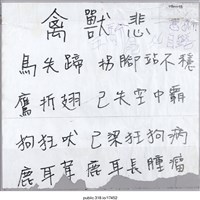 禽獸悲
馬失蹄 拐腳站不穩
鷹折翅 已失空中霸
狗狂吠 已染狂狗病
鹿耳茸 鹿耳長腫瘤
public.318.io/17452